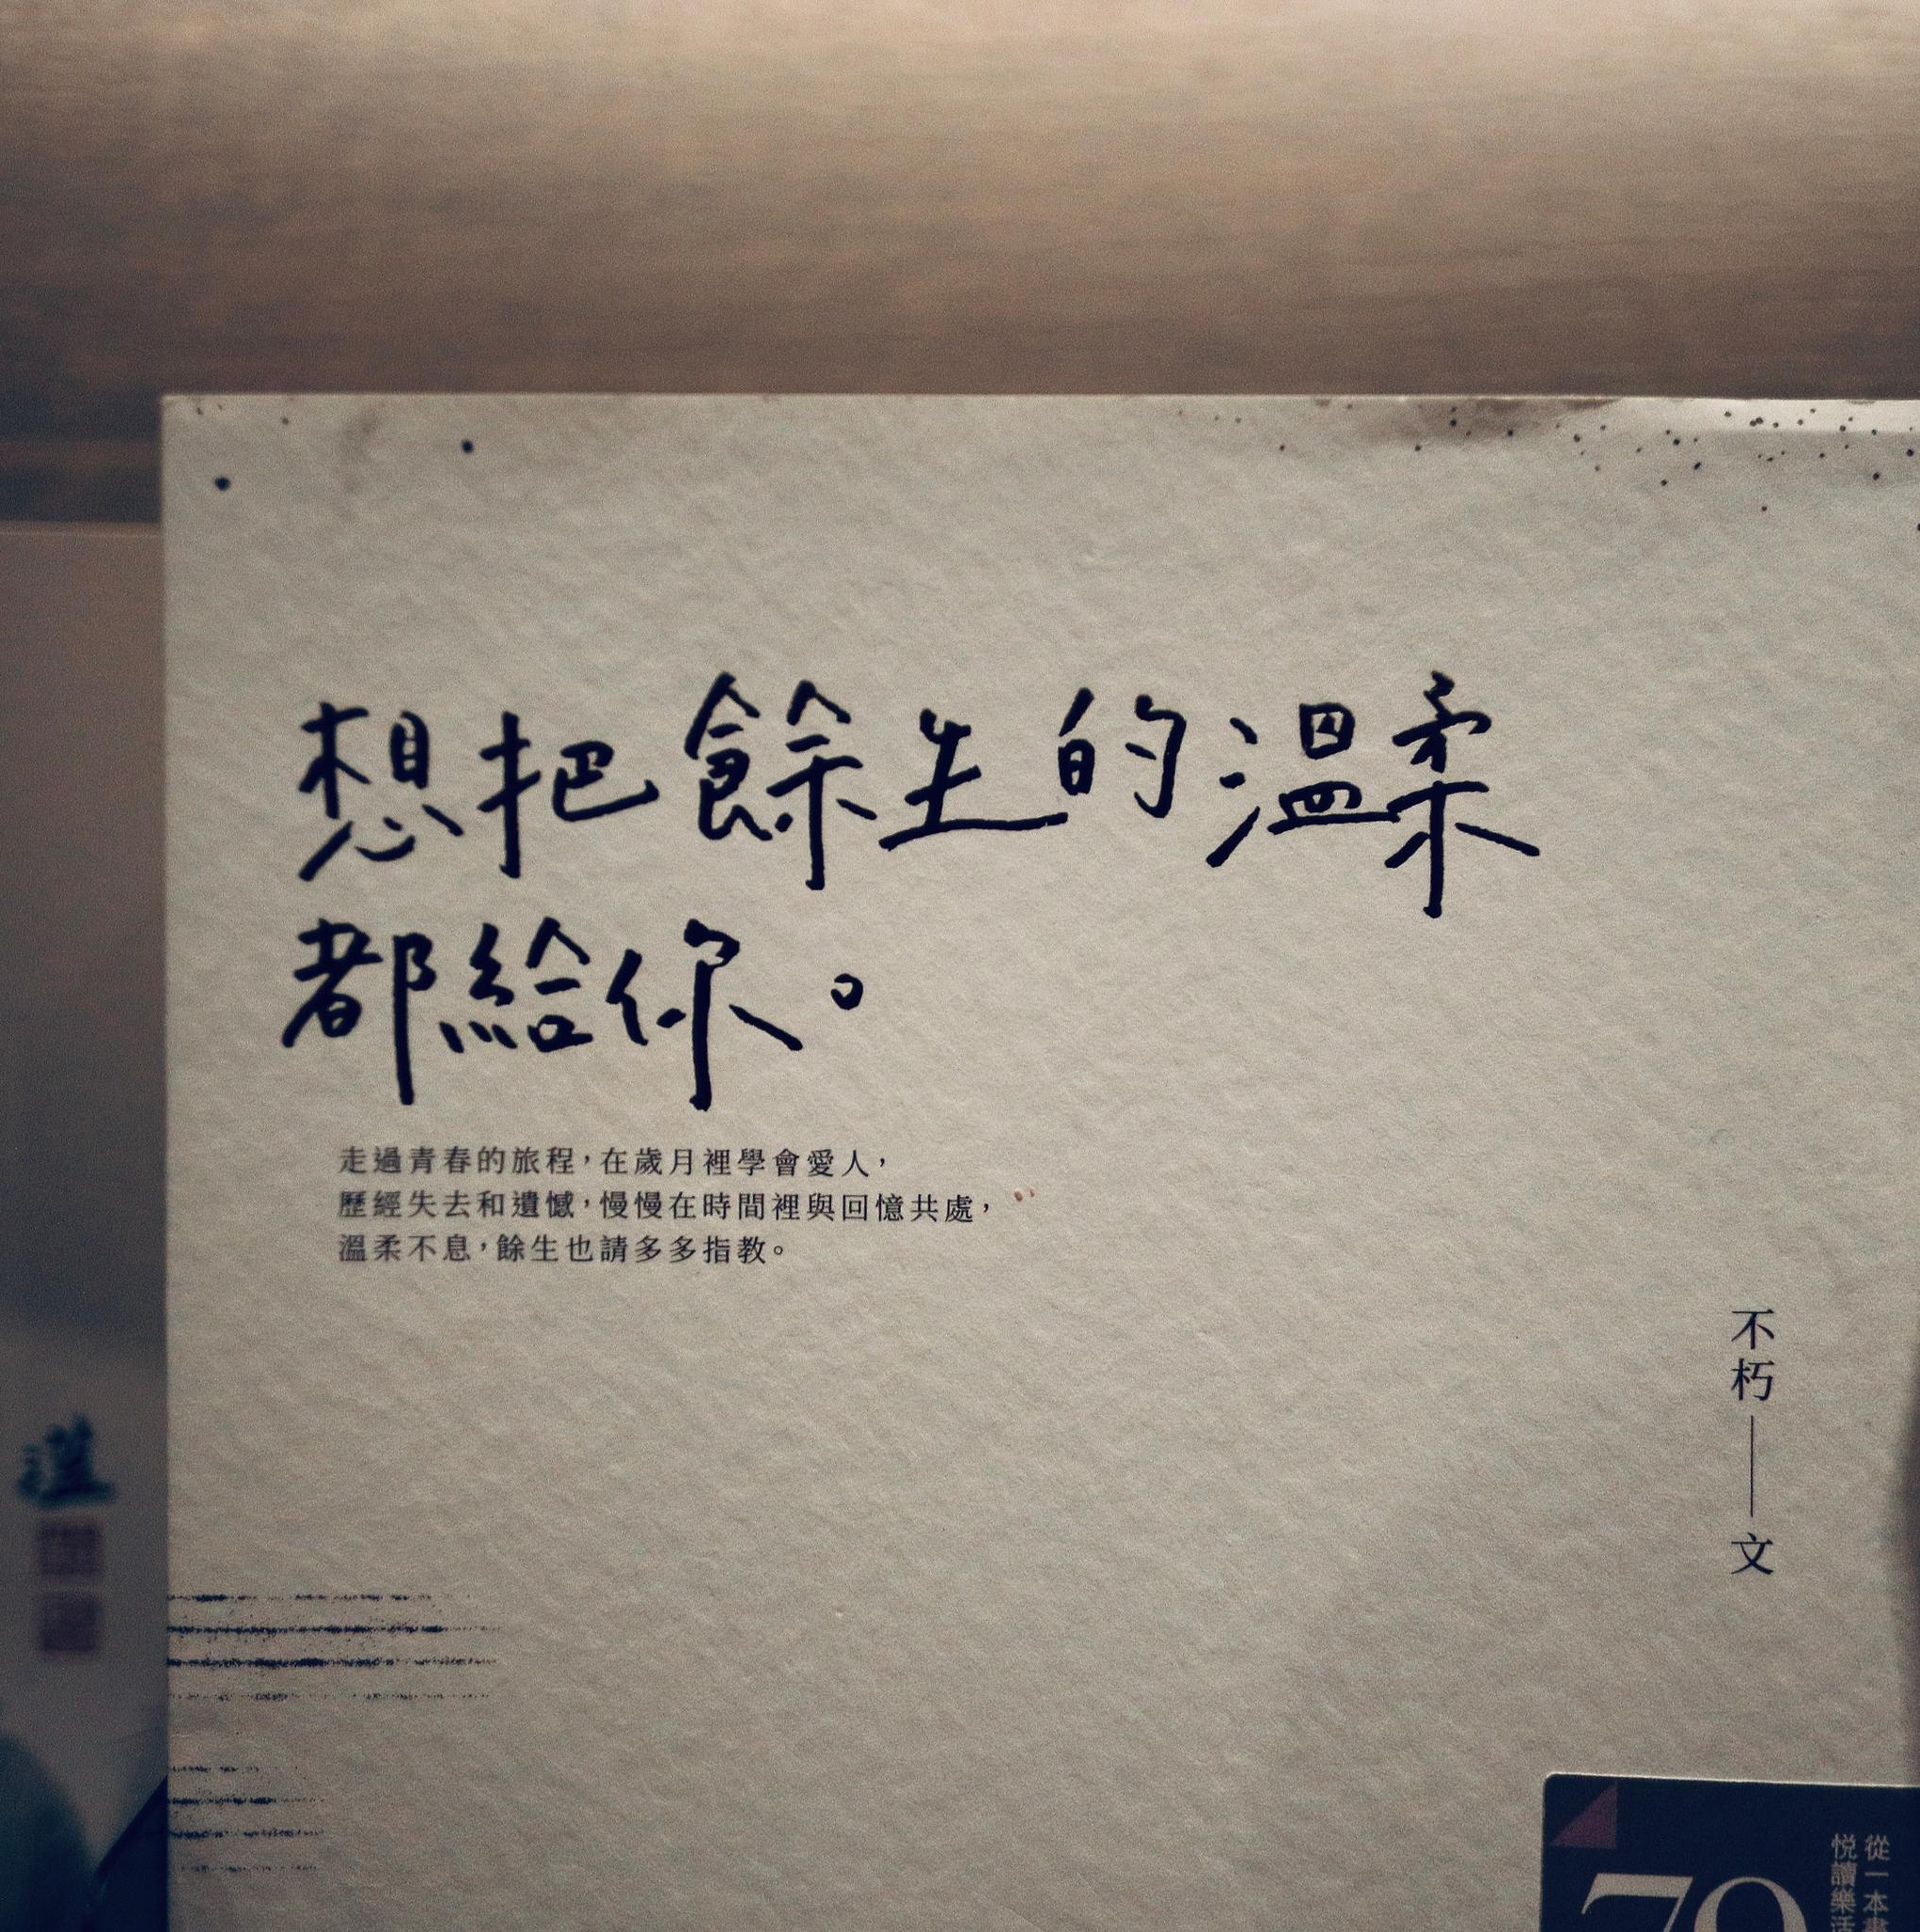 想把餘生的溫柔
都給你。
走過青春的旅程，在歲月裡學會愛人，
歷經失去和遺憾，慢慢在時間裡與回憶共處，
溫柔不息，餘生也請多多指教。
不朽——文
79
從一本
悅讀樂活